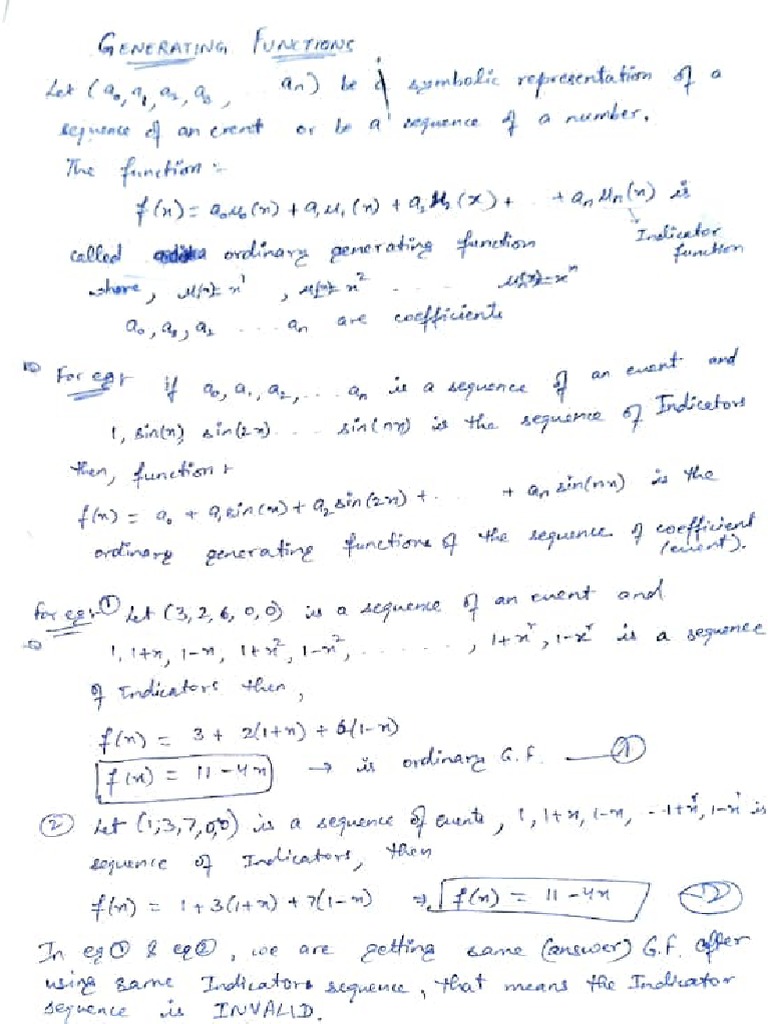 GENERATING FUNCTIONS
Let (a₀, a₁, a₂, a₃, ... aₙ) be a symbolic representation of a
sequence of an event or be a sequence of a number.
The function :-
f(x) = a₀μ₀(x) + a₁μ₁(x) + a₂μ₂(x) + .. + aₙμₙ(x) is
Indicator
function
called ordinary generating function
where, μ(x) = x¹, μ(x) = x² .... μ(x) = xⁿ
a₀, a₁, a₂ ... aₙ are coefficients
For eg:- if a₀, a₁, a₂, ... aₙ is a sequence of an event and
1, sin(x), sin(2x) ... sin(nx) is the sequence of Indicators
then, function :-
f(x) = a₀ + a₁sin(x) + a₂sin(2x) + ... + aₙsin(nx) is the
ordinary generating functions of the sequence of coefficient
(event).
For eg:- ① Let (3, 2, 6, 0, 0) is a sequence of an event and
1, 1+x, 1-x, 1+x², 1-x², ......., 1+xʳ, 1-xʳ is a sequence
of Indicators then,
f(x) = 3 + 2(1+x) + 6(1-x)
f(x) = 11-4x → is ordinary G.F. — ①
② Let (1,3,7,0,0) is a sequence of events, 1, 1+x, 1-x, --1+xʳ, 1-xʳ is
sequence of Indicators, then
f(x) = 1+3(1+x) + 7(1-x) ⇒ f(x) = 11-4x ②
In eg ① & eg ②, we are getting same (answer) G.F. after
using same Indicators sequence, that means the Indicator
sequence is INVALID.